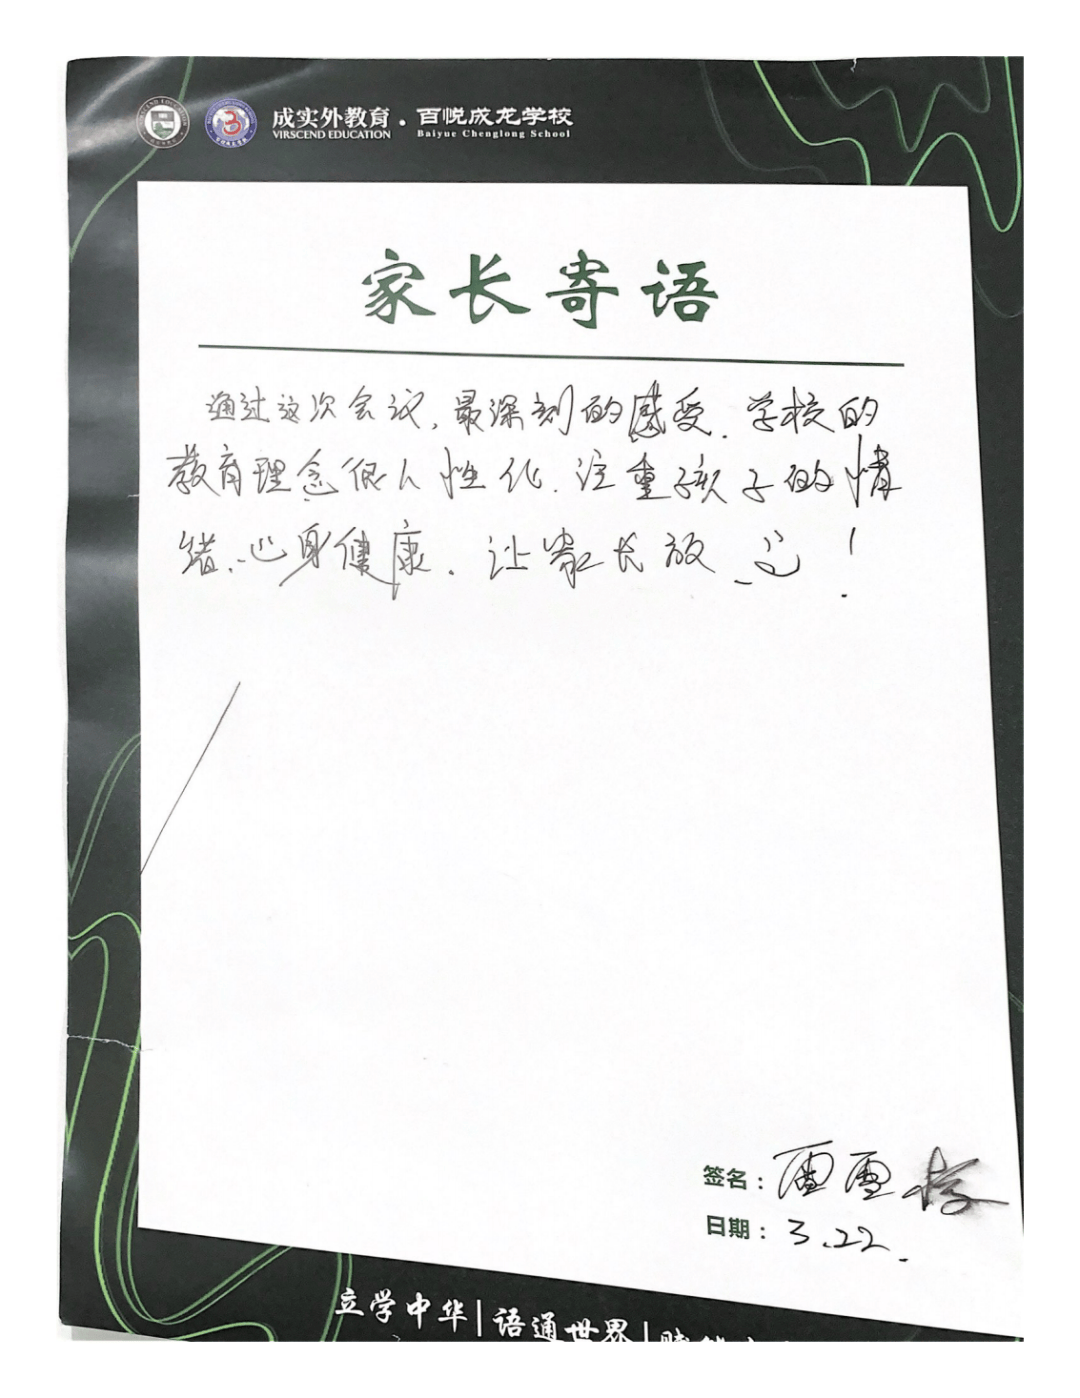 成实外教育·百悦成龙学校
VIRSCEND EDUCATION Baiyue Chenglong School
家长寄语
通过这次会议,最深刻的感受.学校的
教育理念很人性化.注重孩子的情
绪.心身健康.让家长放心!
签名:雷雪
日期:3.22.
立学中华|语通世界|